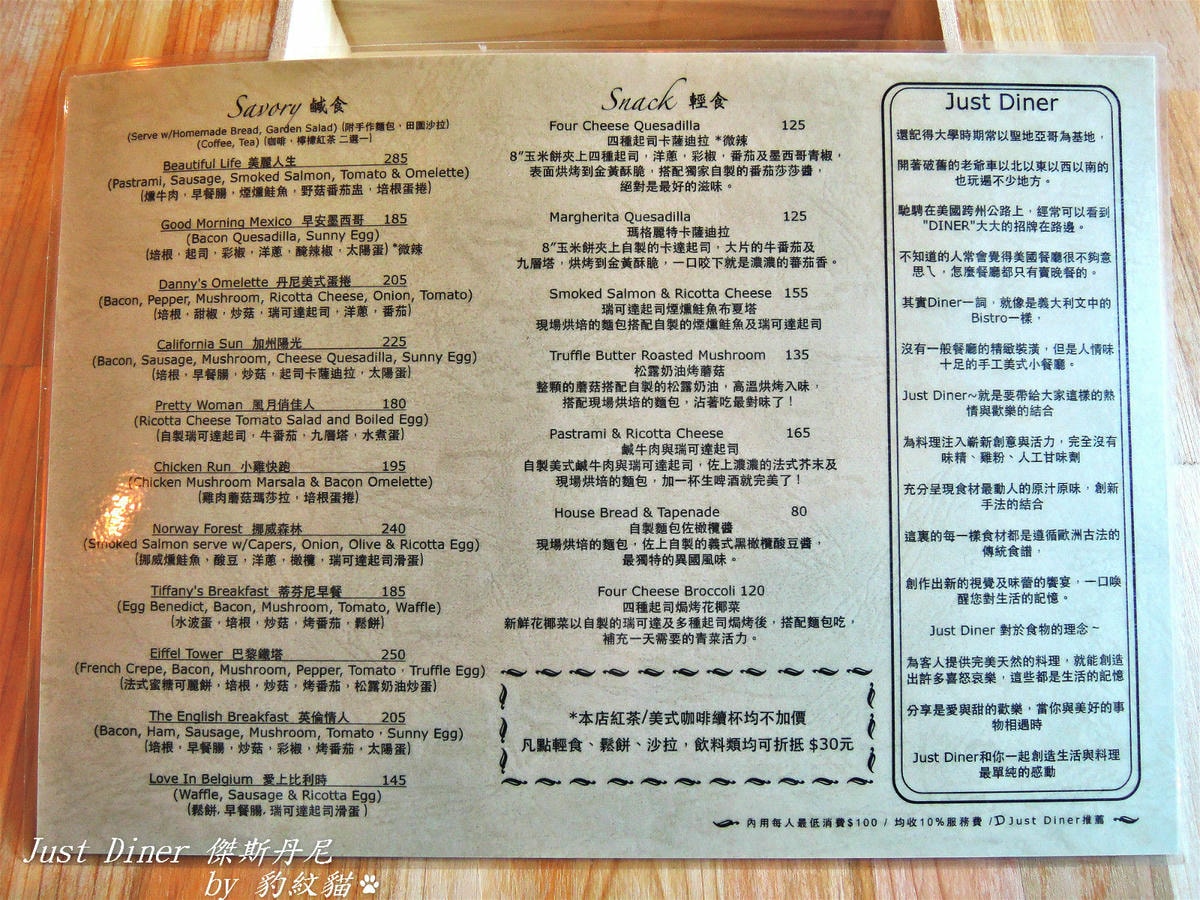 Savory 鹹食
(Serve w/Homemade Bread, Garden Salad) (附手作麵包，田園沙拉)
(Coffee, Tea) (咖啡，檸檬紅茶 二選一)
Beautiful Life 美麗人生 285
(Pastrami, Sausage, Smoked Salmon, Tomato & Omelette)
(燻牛肉，早餐腸，煙燻鮭魚，野菇番茄盅，培根蛋捲)
Good Morning Mexico 早安墨西哥 185
(Bacon Quesadilla, Sunny Egg)
(培根，起司，彩椒，洋蔥，醃辣椒，太陽蛋) *微辣
Danny's Omelette 丹尼美式蛋捲 205
(Bacon, Pepper, Mushroom, Ricotta Cheese, Onion, Tomato)
(培根，甜椒，炒菇，瑞可達起司，洋蔥，番茄)
California Sun 加州陽光 225
(Bacon, Sausage, Mushroom, Cheese Quesadilla, Sunny Egg)
(培根，早餐腸，炒菇，起司卡薩迪拉，太陽蛋)
Pretty Woman 風月俏佳人 180
(Ricotta Cheese Tomato Salad and Boiled Egg)
(自製瑞可達起司，牛番茄，九層塔，水煮蛋)
Chicken Run 小雞快跑 195
(Chicken Mushroom Marsala & Bacon Omelette)
(雞肉蘑菇瑪莎拉，培根蛋捲)
Norway Forest 挪威森林 240
(Smoked Salmon serve w/Capers, Onion, Olive & Ricotta Egg)
(挪威燻鮭魚，酸豆，洋蔥，橄欖，瑞可達起司滑蛋)
Tiffany's Breakfast 蒂芬尼早餐 185
(Egg Benedict, Bacon, Mushroom, Tomato, Waffle)
(水波蛋，培根，炒菇，烤番茄，鬆餅)
Eiffel Tower 巴黎鐵塔 250
(French Crepe, Bacon, Mushroom, Pepper, Tomato，Truffle Egg)
(法式蜜糖可麗餅，培根，炒菇，烤番茄，松露奶油炒蛋)
The English Breakfast 英倫情人 205
(Bacon, Ham, Sausage, Mushroom, Tomato，Sunny Egg)
(培根，早餐腸，炒菇，彩椒，烤番茄，太陽蛋)
Love In Belgium 愛上比利時 145
(Waffle, Sausage & Ricotta Egg)
(鬆餅, 早餐腸, 瑞可達起司滑蛋 )
Snack 輕食
Four Cheese Quesadilla 125
四種起司卡薩迪拉 *微辣
8”玉米餅夾上四種起司，洋蔥，彩椒，番茄及墨西哥青椒，
表面烘烤到金黃酥脆，搭配獨家自製的番茄莎莎醬，
絕對是最好的滋味。
Margherita Quesadilla 125
瑪格麗特卡薩迪拉
8”玉米餅夾上自製的卡達起司，大片的牛番茄及
九層塔，烘烤到金黃酥脆，一口咬下就是濃濃的蕃茄香。
Smoked Salmon & Ricotta Cheese 155
瑞可達起司煙燻鮭魚布夏塔
現場烘培的麵包搭配自製的煙燻鮭魚及瑞可達起司
Truffle Butter Roasted Mushroom 135
松露奶油烤蘑菇
整顆的蘑菇搭配自製的松露奶油，高溫烘烤入味，
搭配現場烘培的麵包，沾著吃最對味了！
Pastrami & Ricotta Cheese 165
鹹牛肉與瑞可達起司
自製美式鹹牛肉與瑞可達起司，佐上濃濃的法式芥末及
現場烘培的麵包，加一杯生啤酒就完美了！
House Bread & Tapenade 80
自製麵包佐橄欖醬
現場烘培的麵包，佐上自製的義式黑橄欖酸豆醬，
最獨特的異國風味。
Four Cheese Broccoli 120
四種起司焗烤花椰菜
新鮮花椰菜以自製的瑞可達及多種起司焗烤後，搭配麵包吃，
補充一天需要的青菜活力。
*本店紅茶/美式咖啡續杯均不加價
凡點輕食、鬆餅、沙拉，飲料類均可折抵 $30元
Just Diner
還記得大學時期常以聖地亞哥為基地，
開著破舊的老爺車以北以東以西以南的
也玩遍不少地方。
馳騁在美國跨州公路上，經常可以看到
"DINER"大大的招牌在路邊。
不知道的人常會覺得美國餐廳很不夠意
思ㄟ，怎麼餐廳都只有賣晚餐的。
其實Diner一詞，就像是義大利文中的
Bistro一樣，
沒有一般餐廳的精緻裝潢，但是人情味
十足的手工美式小餐廳。
Just Diner~就是要帶給大家這樣的熱
情與歡樂的結合
為料理注入嶄新創意與活力，完全沒有
味精、雞粉、人工甘味劑
充分呈現食材最動人的原汁原味，創新
手法的結合
這裏的每一樣食材都是遵循歐洲古法的
傳統食譜，
創作出新的視覺及味蕾的饗宴，一口喚
醒您對生活的記憶。
Just Diner 對於食物的理念~
為客人提供完美天然的料理，就能創造
出許多喜怒哀樂，這些都是生活的記憶
分享是愛與甜的歡樂，當你與美好的事
物相遇時
Just Diner和你一起創造生活與料理
最單純的感動
內用每人最低消費$100 / 均收10%服務費 /D Just Diner推薦
Just Diner 傑斯丹尼
by 豹紋貓